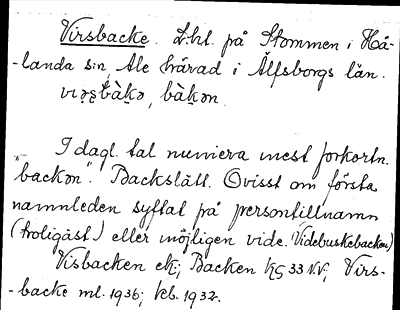 Virsbacke. Lht. på Stommen i Hå-
-landa s:n, Ale härad i Älfsborgs län.
bàkən.
I dagl. tal numera mest förkortn.
"backən". Backslätt. Ovisst om första
namnleden syftat på persontillnamn
(troligast) eller möjligen vide. (Videbuskebacken)
Visbacken ek; Backen KG 33 N.V; Virs-
-backe ml. 1936; kb. 1932.